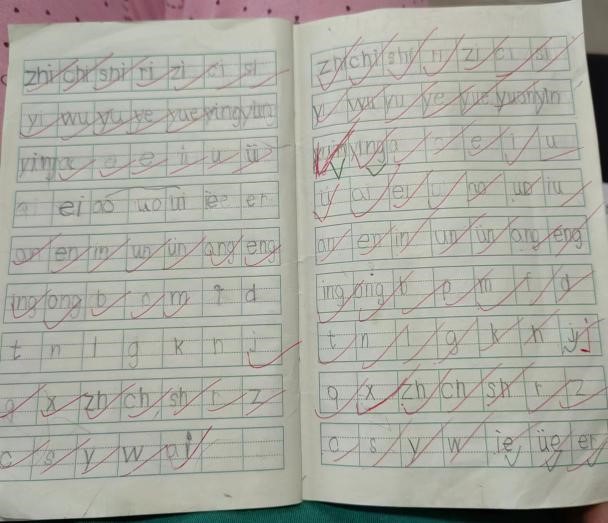 zhi chi shi ri zi ci si
yi wu yu ye yue ying yun
ying a o e i u ü
ei ao uo ui ie er
an en in un ün ang eng
ing ong b p m f d
t n l g k h j
q x zh ch sh r z
c s y w ai
zhi chi shi ri zi ci si
yi wu yu ye yue yuan yin
ying a o e i u
ü ai ei ui ao uo iu
an en in un ün ang eng
ing ong b p m f d
t n l g k h j
q x zh ch sh r z
c s y w ie üe er